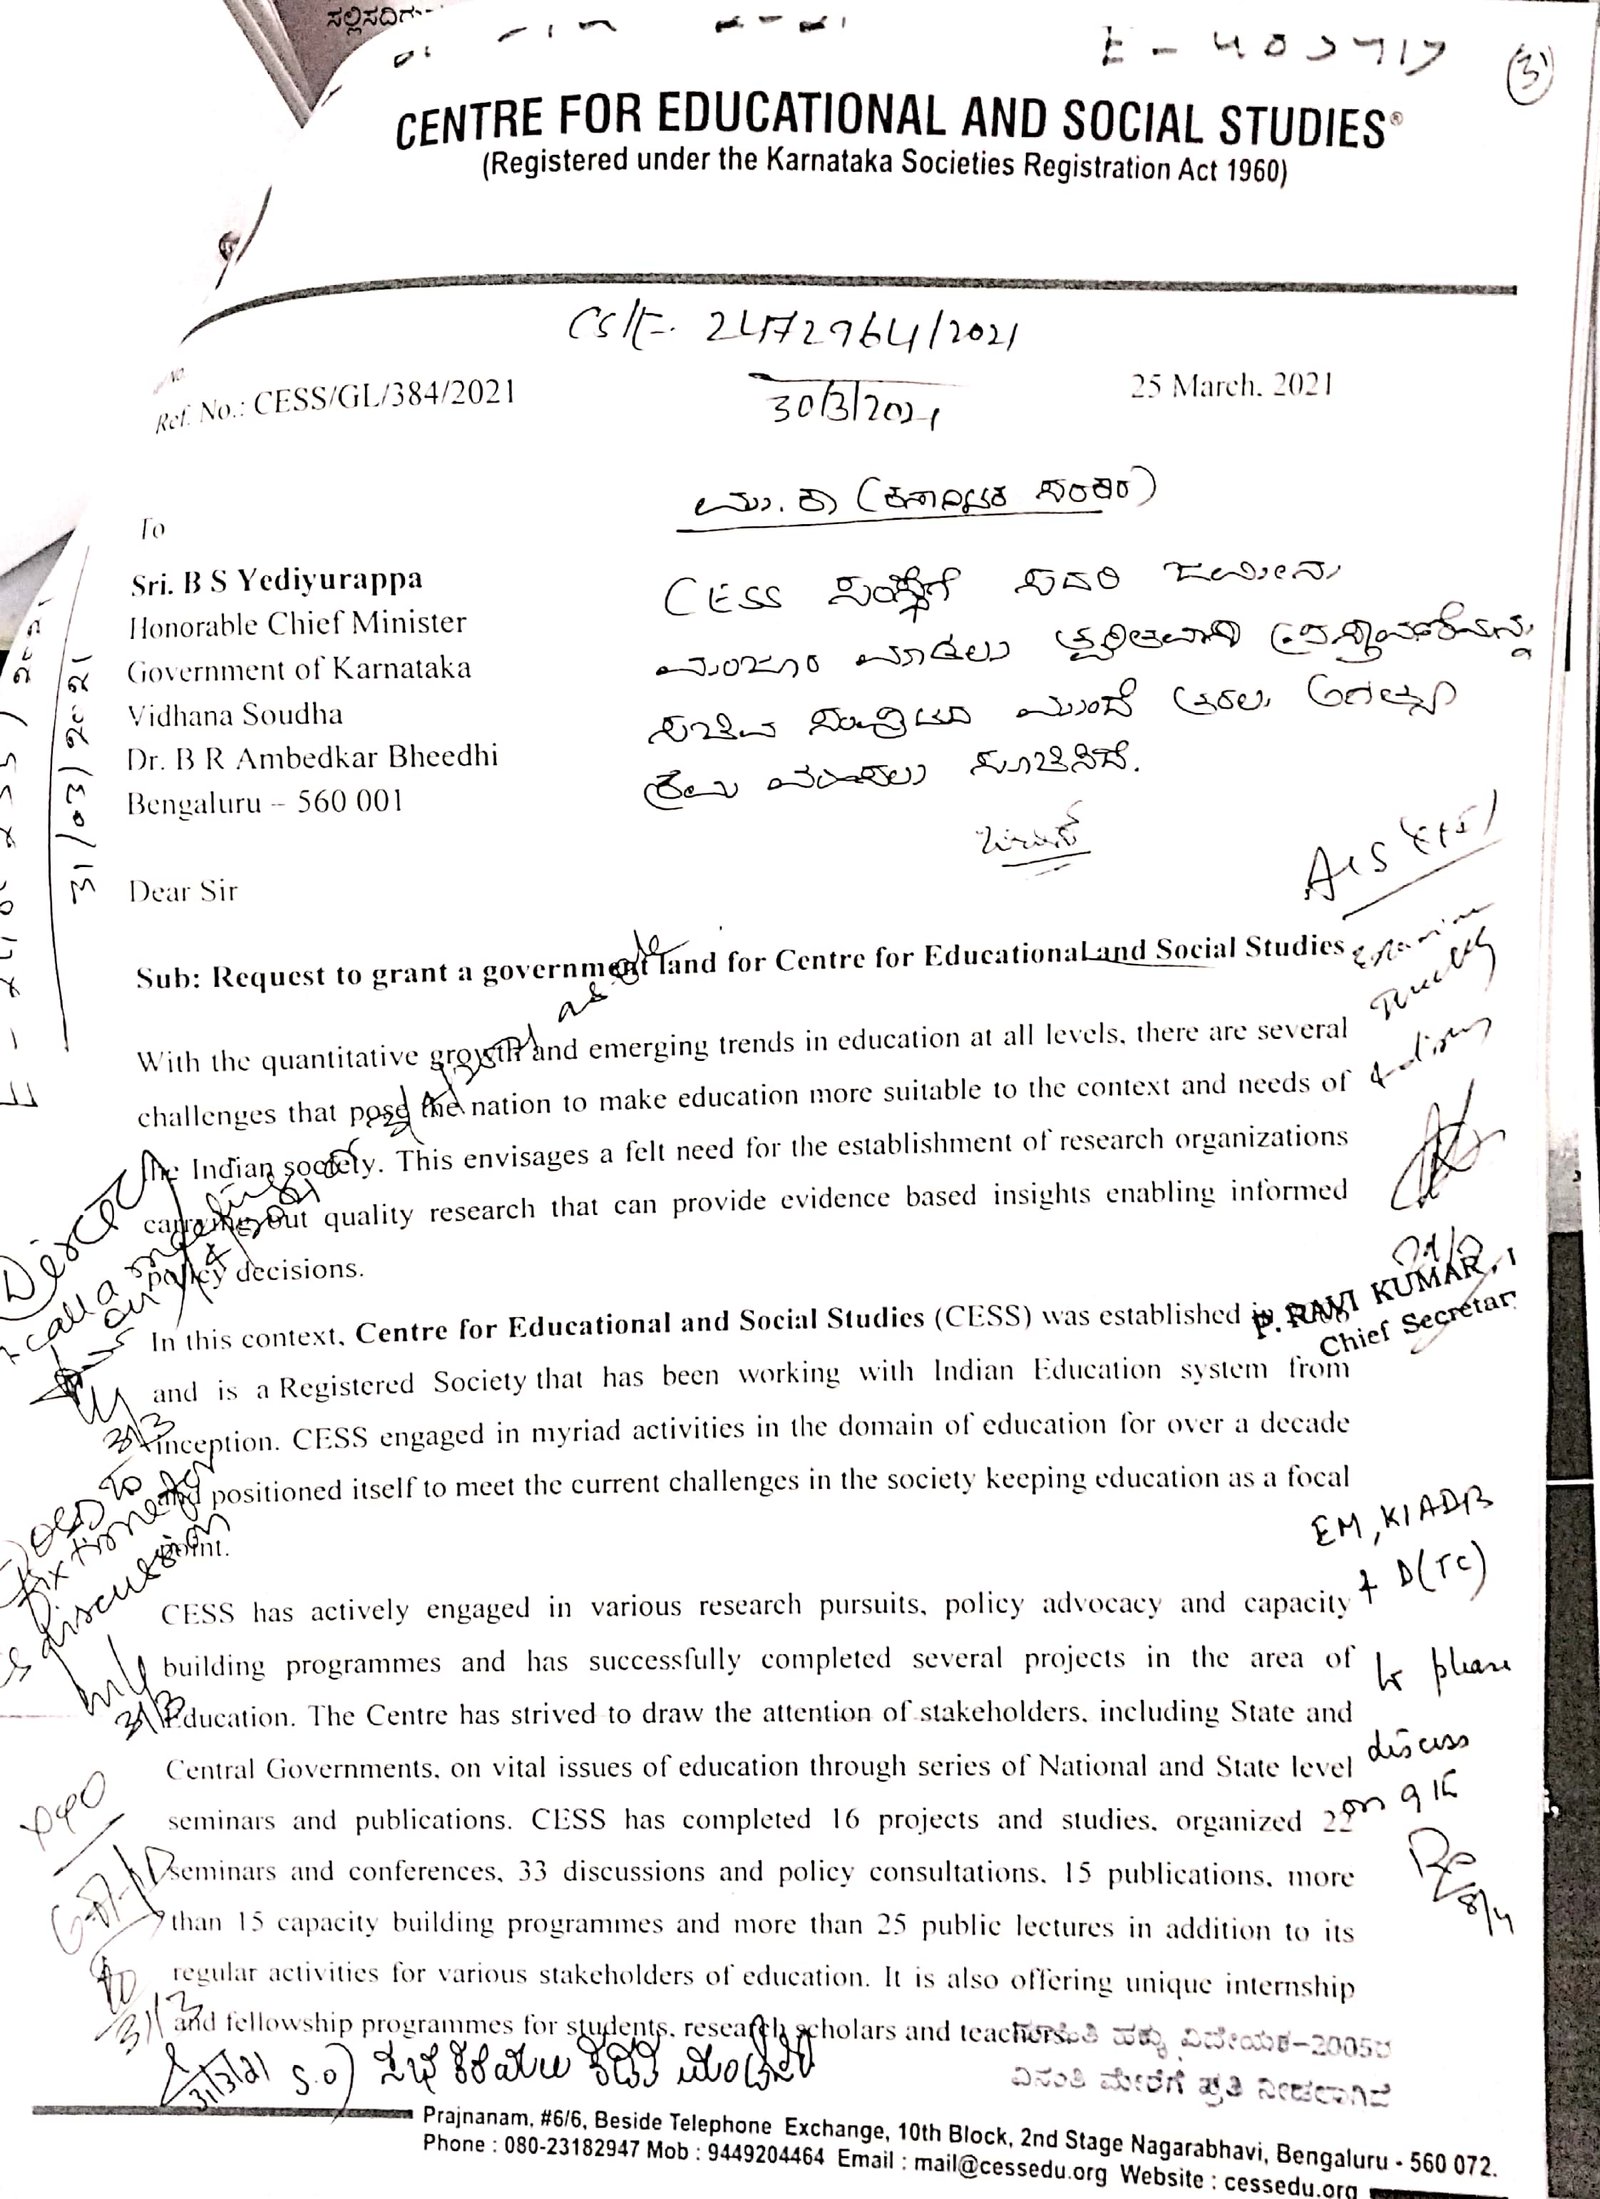 ಸಲ್ಲಿಸದಿಗು
31
CENTRE FOR EDUCATIONAL AND SOCIAL STUDIES®
(Registered under the Karnataka Societies Registration Act 1960)
30/3/2021
Ref. No.: CESS/GL/384/2021
25 March, 2021
To
Sri. B S Yediyurappa
Honorable Chief Minister
Government of Karnataka
Vidhana Soudha
Dr. B R Ambedkar Bheedhi
Bengaluru – 560 001
CESS ಸಂಸ್ಥೆಗೆ ಸದರಿ ಜಮೀನು
ಮಂಜೂರು ಮಾಡಲು ತ್ವರಿತವಾಗಿ ಪ್ರಸ್ತಾವನೆಯನ್ನು
ಸಚಿವ ಸಂಪುಟದ ಮುಂದೆ ತರಲು ಅಗತ್ಯ
ಕ್ರಮ ವಹಿಸಲು ಸೂಚಿಸಿದೆ.
31/03/2021
Dear Sir
Sub: Request to grant a government land for Centre for Educational and Social Studies
With the quantitative growth and emerging trends in education at all levels, there are several
challenges that pose the nation to make education more suitable to the context and needs of
the Indian society. This envisages a felt need for the establishment of research organizations
carrying out quality research that can provide evidence based insights enabling informed
policy decisions.
P. RAVI KUMAR, I
Chief Secretar
In this context, Centre for Educational and Social Studies (CESS) was established in
and is a Registered Society that has been working with Indian Education system from
inception. CESS engaged in myriad activities in the domain of education for over a decade
and positioned itself to meet the current challenges in the society keeping education as a focal
point.
Director
call a meeting
31/3
OSD to
fix time for
discussion
31/3
EM, KIADB
+ D(TC)
to please
discuss
on 9/4
8/4
CESS has actively engaged in various research pursuits, policy advocacy and capacity
building programmes and has successfully completed several projects in the area of
Education. The Centre has strived to draw the attention of stakeholders, including State and
Central Governments, on vital issues of education through series of National and State level
seminars and publications. CESS has completed 16 projects and studies, organized 22
seminars and conferences, 33 discussions and policy consultations, 15 publications, more
than 15 capacity building programmes and more than 25 public lectures in addition to its
regular activities for various stakeholders of education. It is also offering unique internship
and fellowship programmes for students, research scholars and teachers.
31/3
31/3/21 S.O)
ಮಾಹಿತಿ ಹಕ್ಕು ವಿಧೇಯಕ-2005ರ
ವಿನಂತಿ ಮೇರೆಗೆ ಪ್ರತಿ ನೀಡಲಾಗಿದೆ
Prajnanam, #6/6, Beside Telephone Exchange, 10th Block, 2nd Stage Nagarabhavi, Bengaluru - 560 072.
Phone : 080-23182947 Mob : 9449204464 Email : mail@cessedu.org Website : cessedu.org